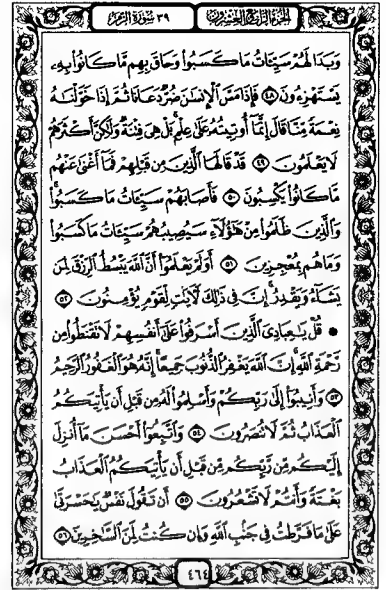 الجزء الرابع والعشرون
٣٩ سورة الزمر
وَبَدَا لَهُمْ سَيِّـَٔاتُ مَا كَسَبُوا۟ وَحَاقَ بِهِم مَّا كَانُوا۟ بِهِۦ
يَسْتَهْزِءُونَ ٤٨ فَإِذَا مَسَّ ٱلْإِنسَـٰنَ ضُرٌّ دَعَانَا ثُمَّ إِذَا خَوَّلْنَـٰهُ
نِعْمَةً مِّنَّا قَالَ إِنَّمَآ أُوتِيتُهُۥ عَلَىٰ عِلْمٍۭ بَلْ هِىَ فِتْنَةٌ وَلَـٰكِنَّ أَكْثَرَهُمْ
لَا يَعْلَمُونَ ٤٩ قَدْ قَالَهَا ٱلَّذِينَ مِن قَبْلِهِمْ فَمَآ أَغْنَىٰ عَنْهُم
مَّا كَانُوا۟ يَكْسِبُونَ ٥٠ فَأَصَابَهُمْ سَيِّـَٔاتُ مَا كَسَبُوا۟
وَٱلَّذِينَ ظَلَمُوا۟ مِنْ هَـٰٓؤُلَآءِ سَيُصِيبُهُمْ سَيِّـَٔاتُ مَا كَسَبُوا۟
وَمَا هُم بِمُعْجِزِينَ ٥١ أَوَلَمْ يَعْلَمُوٓا۟ أَنَّ ٱللَّهَ يَبْسُطُ ٱلرِّزْقَ لِمَن
يَشَآءُ وَيَقْدِرُ إِنَّ فِى ذَٰلِكَ لَـَٔايَـٰتٍ لِّقَوْمٍ يُؤْمِنُونَ ٥٢
قُلْ يَـٰعِبَادِىَ ٱلَّذِينَ أَسْرَفُوا۟ عَلَىٰٓ أَنفُسِهِمْ لَا تَقْنَطُوا۟ مِن
رَّحْمَةِ ٱللَّهِ إِنَّ ٱللَّهَ يَغْفِرُ ٱلذُّنُوبَ جَمِيعًا إِنَّهُۥ هُوَ ٱلْغَفُورُ ٱلرَّحِيمُ
٥٣ وَأَنِيبُوٓا۟ إِلَىٰ رَبِّكُمْ وَأَسْلِمُوا۟ لَهُۥ مِن قَبْلِ أَن يَأْتِيَكُمُ
ٱلْعَذَابُ ثُمَّ لَا تُنصَرُونَ ٥٤ وَٱتَّبِعُوٓا۟ أَحْسَنَ مَآ أُنزِلَ
إِلَيْكُم مِّن رَّبِّكُم مِّن قَبْلِ أَن يَأْتِيَكُمُ ٱلْعَذَابُ
بَغْتَةً وَأَنتُمْ لَا تَشْعُرُونَ ٥٥ أَن تَقُولَ نَفْسٌ يَـٰحَسْرَتَىٰ
عَلَىٰ مَا فَرَّطتُ فِى جَنۢبِ ٱللَّهِ وَإِن كُنتُ لَمِنَ ٱلسَّـٰخِرِينَ ٥٦
٤٦٤